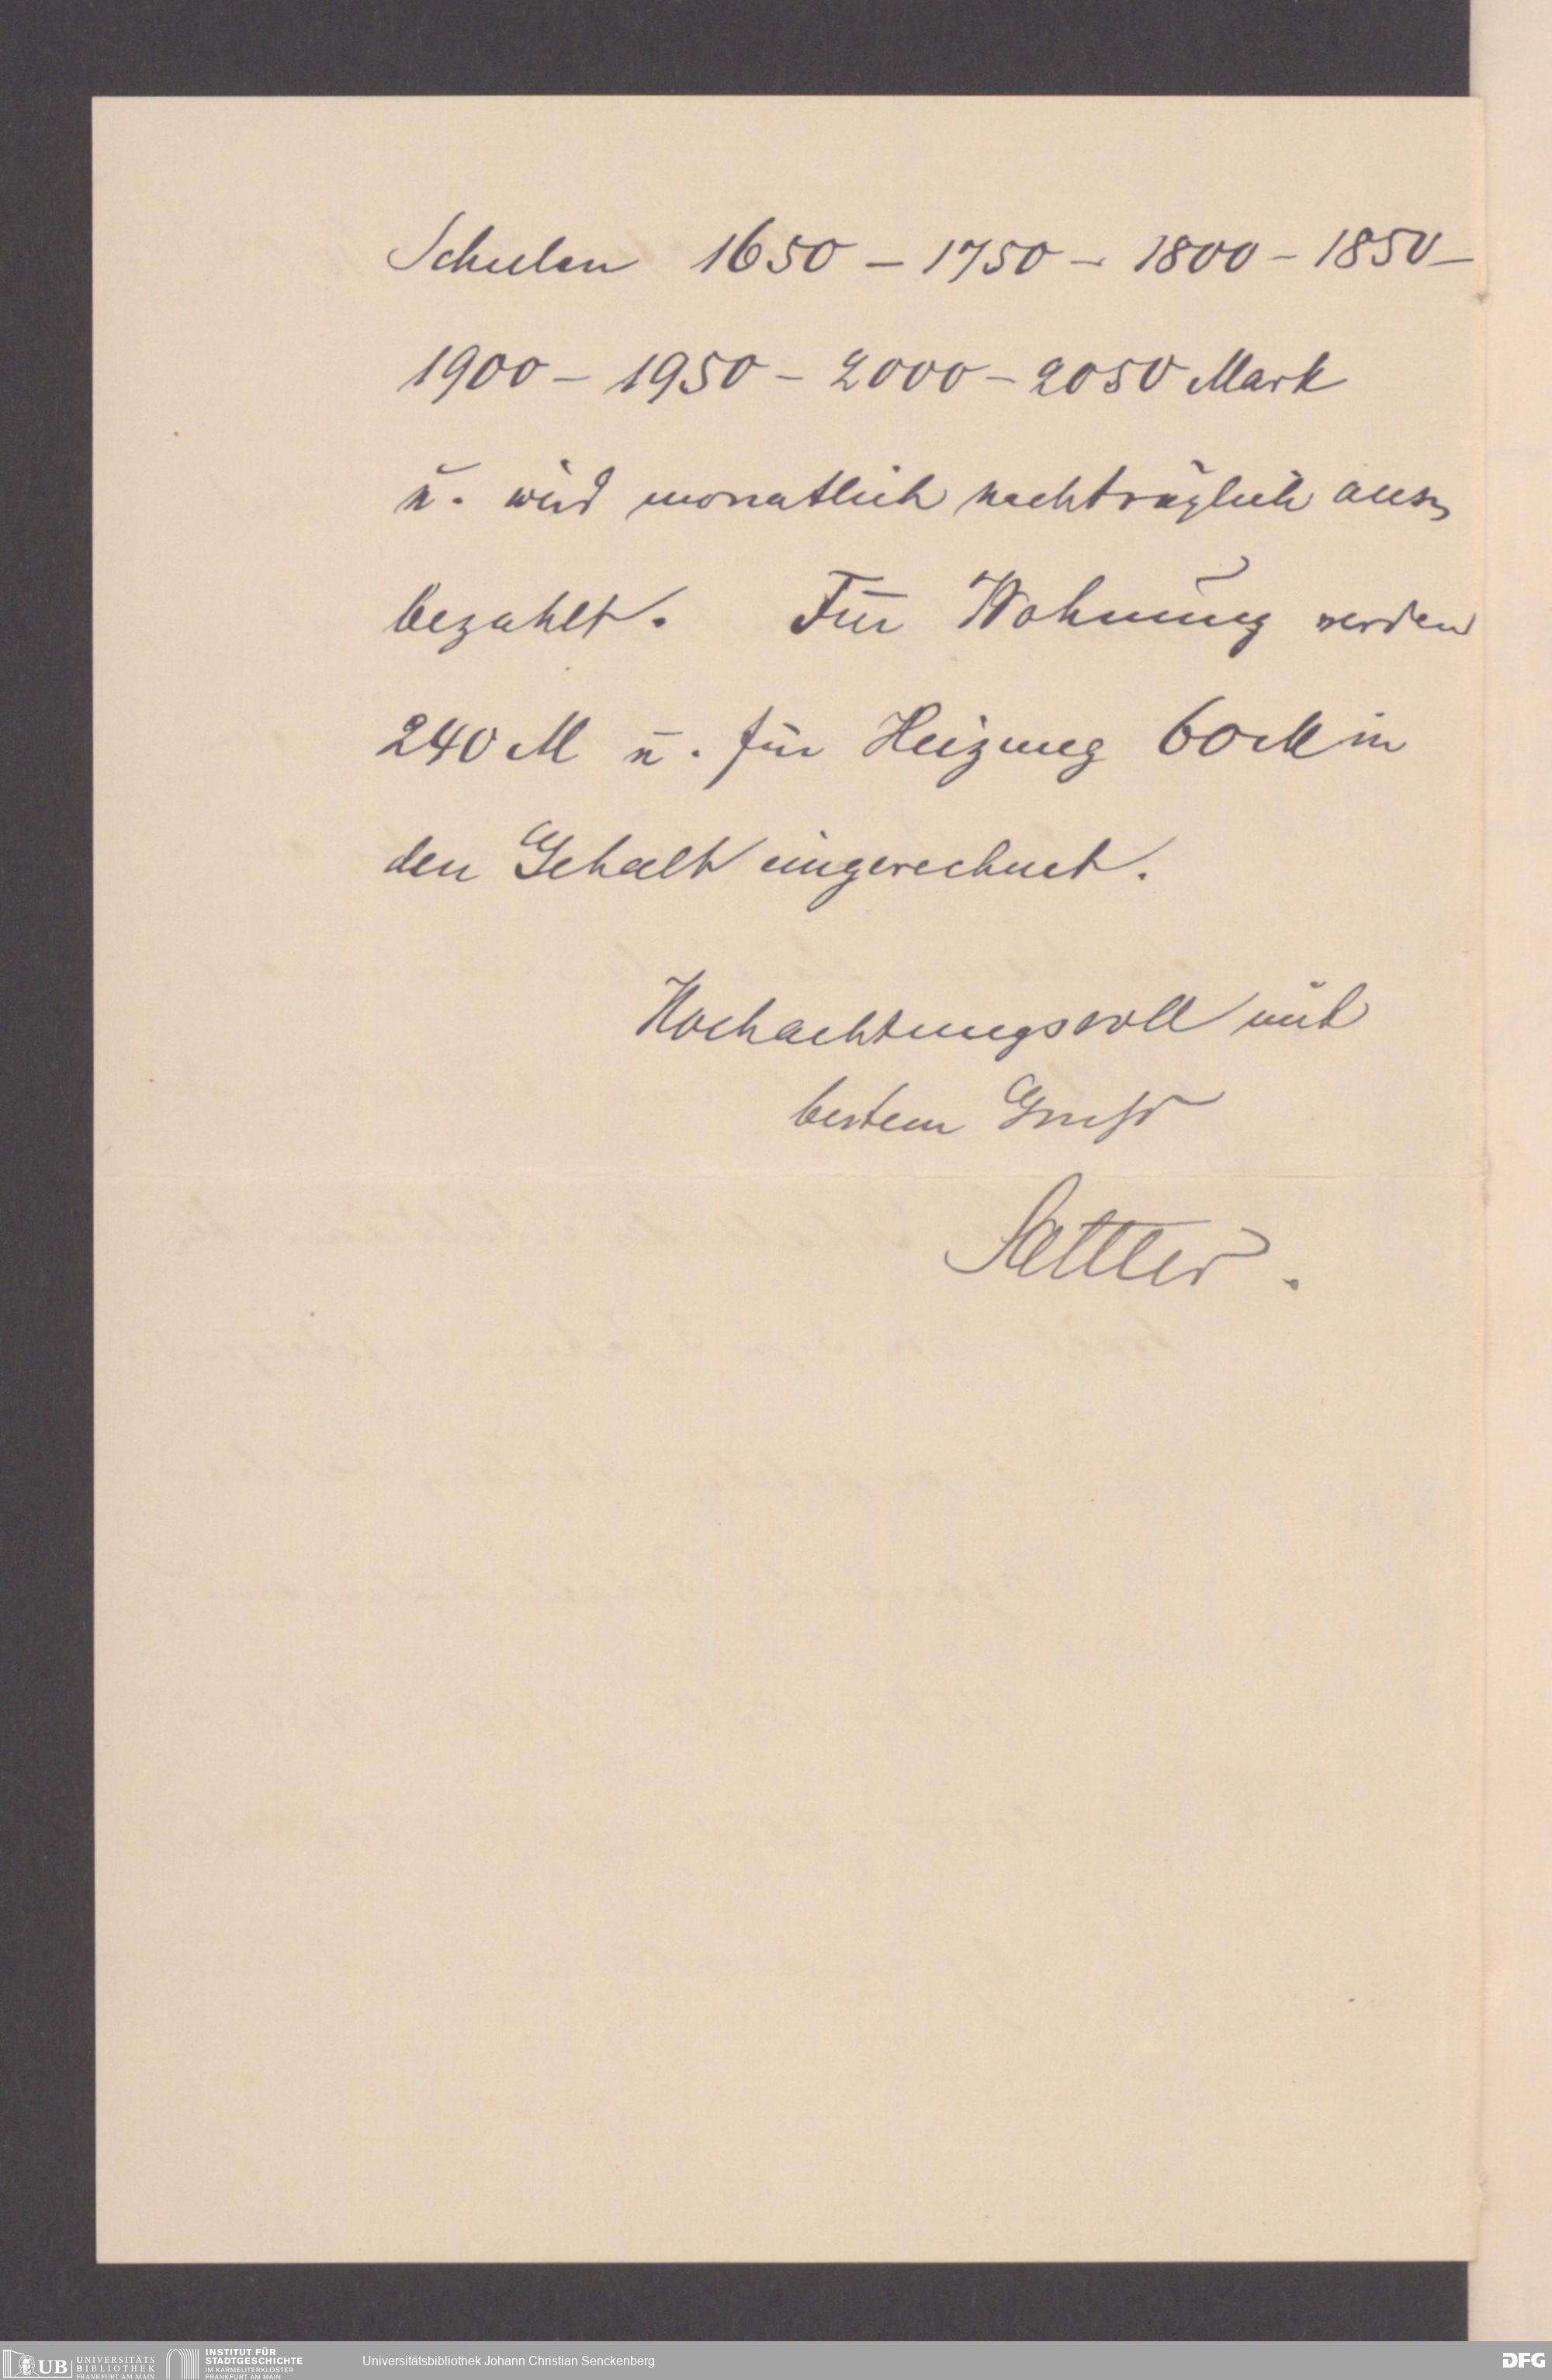 Schulen 1650 – 1750 – 1800 – 1850 –
1900 – 1950 – 2000 – 2050 Mark
u. wird monatlich nachträglich aus-
bezahlt. Für Wohnung werden
240 M u. für Heizung 60 M in
den Gehalt eingerechnet.
Hochachtungsvoll mit
bestem Gruß
Sattler.
UB UNIVERSITÄTS
BIBLIOTHEK
FRANKFURT AM MAIN
INSTITUT FÜR
STADTGESCHICHTE
IM KARMELITERKLOSTER
FRANKFURT AM MAIN
Universitätsbibliothek Johann Christian Senckenberg
DFG